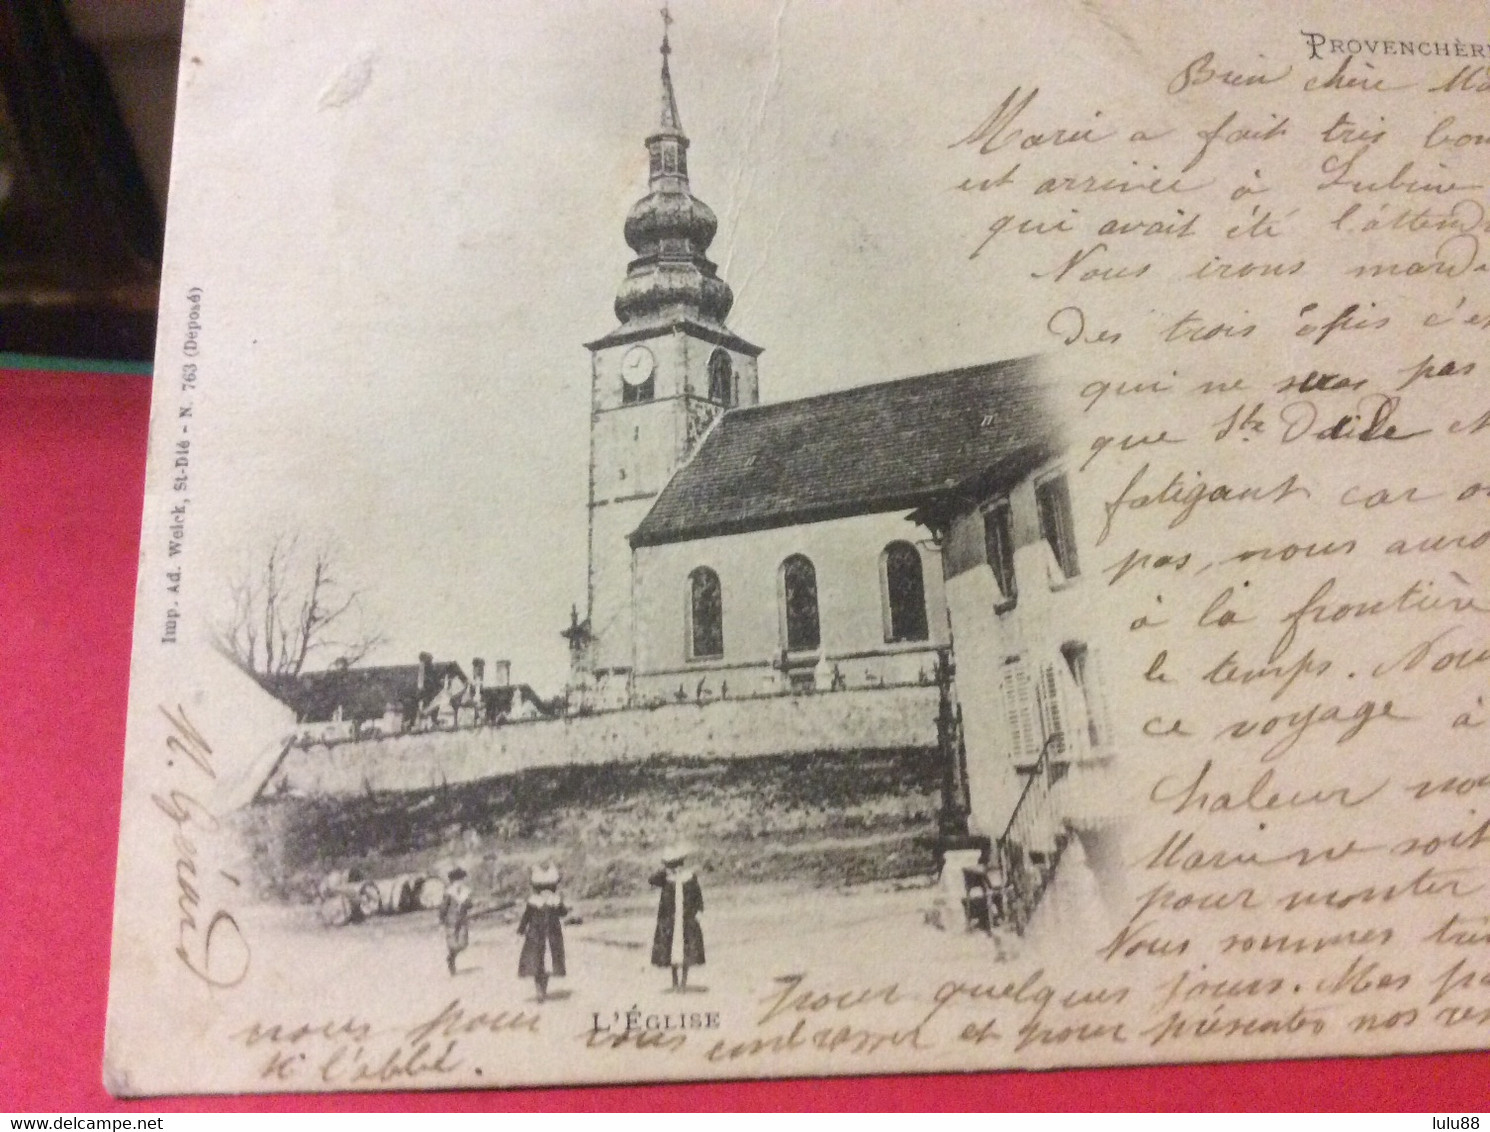 PROVENCHÈR
Bien chère Ma
Marie a fait très bon
est arrivée à Lubine
qui avait été l'attend
Nous irons mardi
des trois épis c'es
qui ne sera pas
que Ste Odile et
fatigant car o
pas, nous auro
à la frontière
le temps. Nou
ce voyage à
chaleur nou
Marie ne soit
pour monter
Nous sommes trè
pour quelques jours. Mes pa
nous pour vous embrasser et pour présenter nos res
à l'abbé.
L'ÉGLISE
Imp. Ad. Weick, St-Dié - N. 763 (Déposé)
M. Gérard
delcampe.net
lulu88